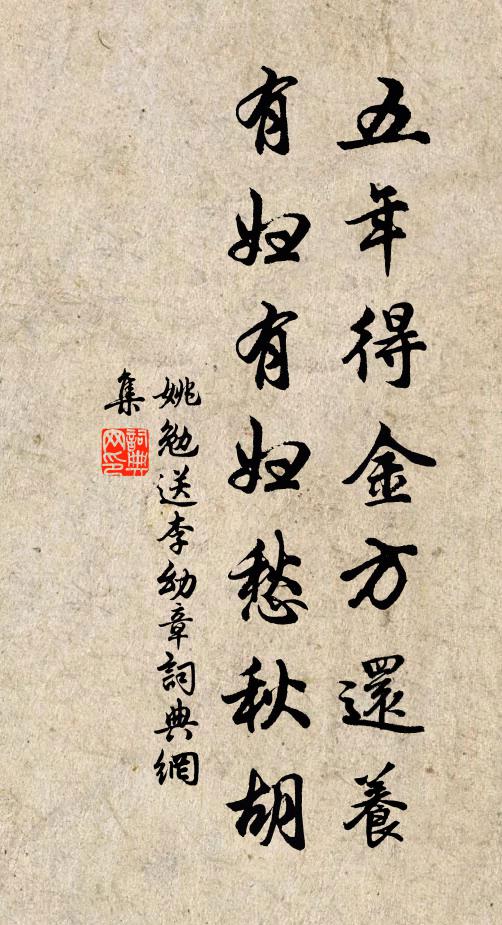 五年得金方還養
有妇有妇愁秋胡
姚勉送李幼章詞典網
集
詞典
网印